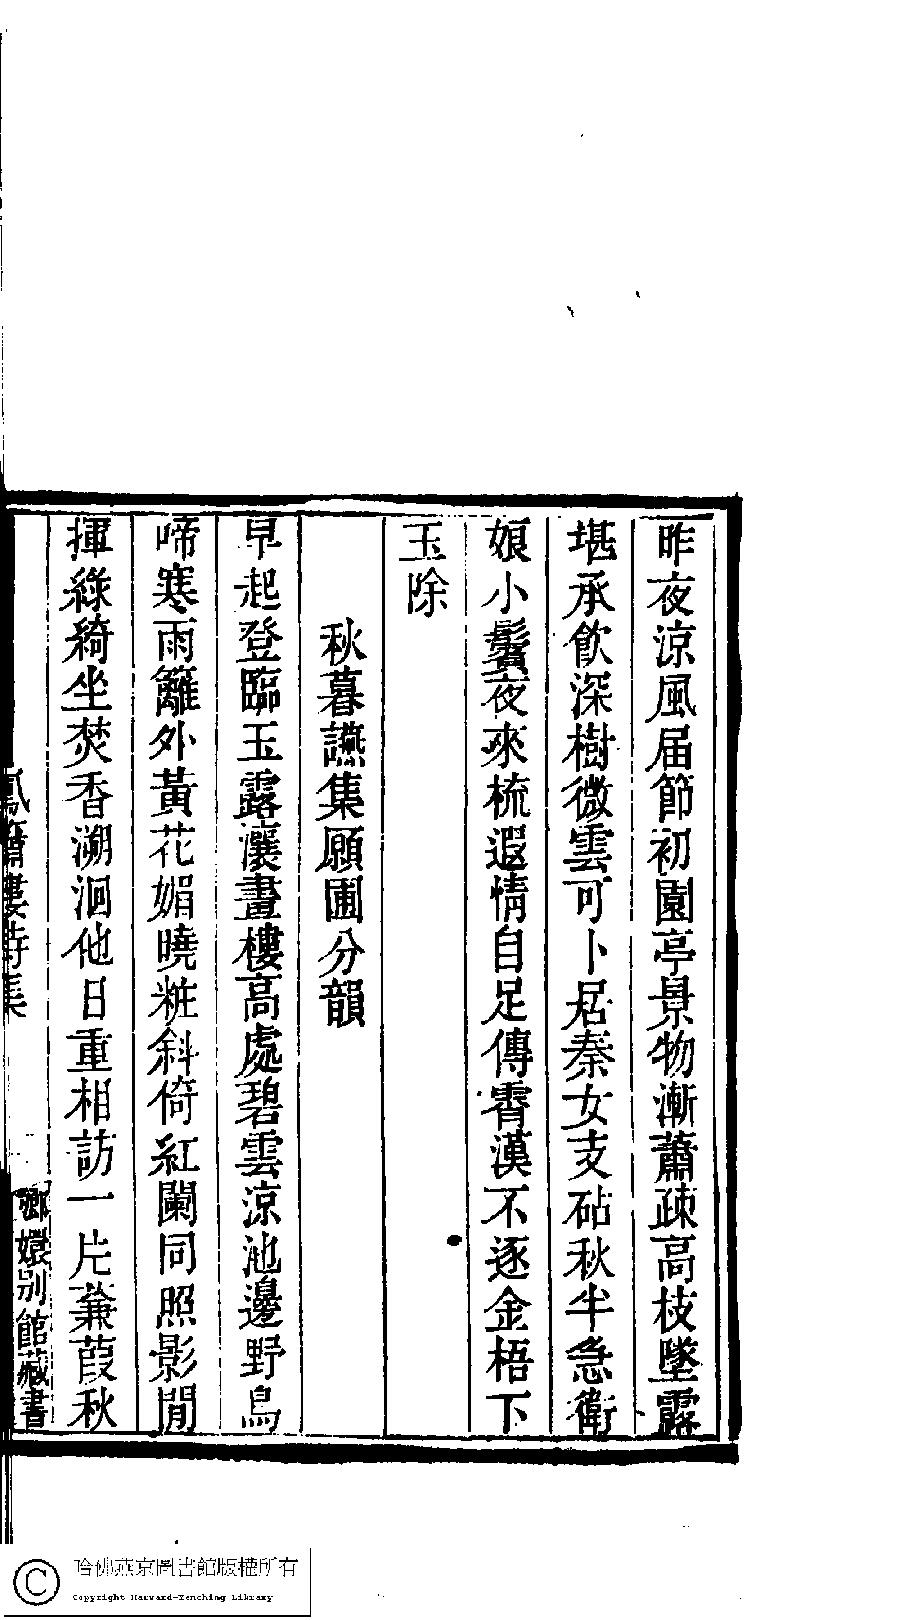 昨夜涼風届節初園亭景物漸蕭疎高枝墜露
堪承飲深樹微雲可卜居秦女支砧秋半急衛
娘小鬟夜來梳遐情自足傳霄漢不逐金梧下
玉除
秋暮讌集願圃分韻
早起登臨玉露瀼畫樓高處碧雲涼池邊野鳥
啼寒雨籬外黃花媚曉粧斜倚紅闌同照影閒
揮綠綺坐焚香溯洄他日重相訪一片蒹葭秋
鳳簫樓詩集
嫏嬛别館藏書
哈佛燕京圖書館版權所有
Copyright Harvard-Yenching Library